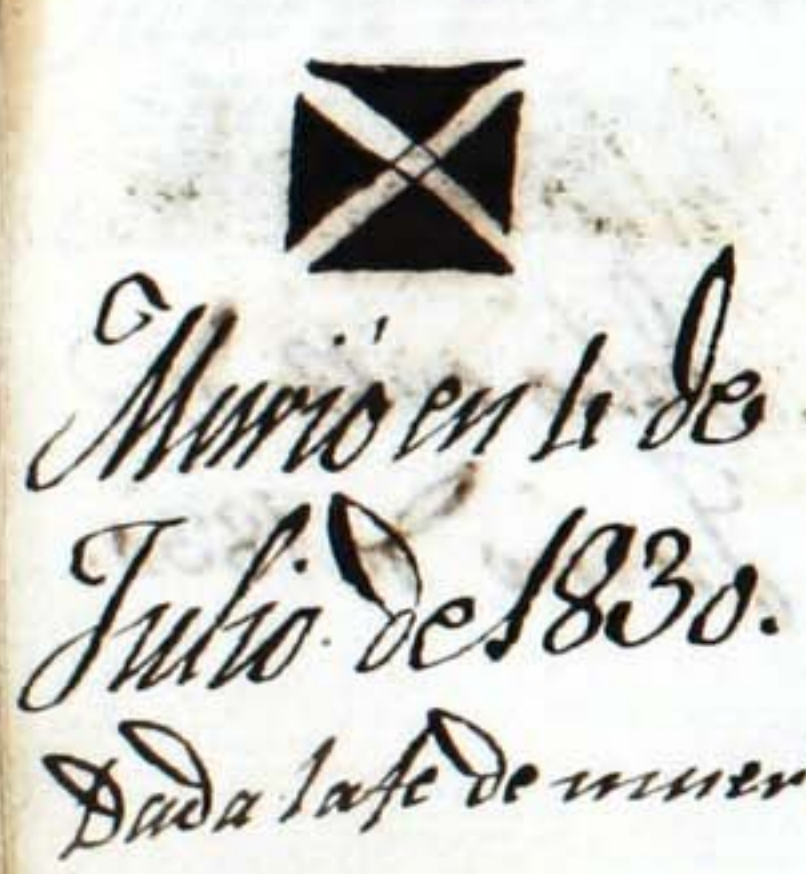 Murió en 4 de
Julio. de 1830.
Dada la fe de muer